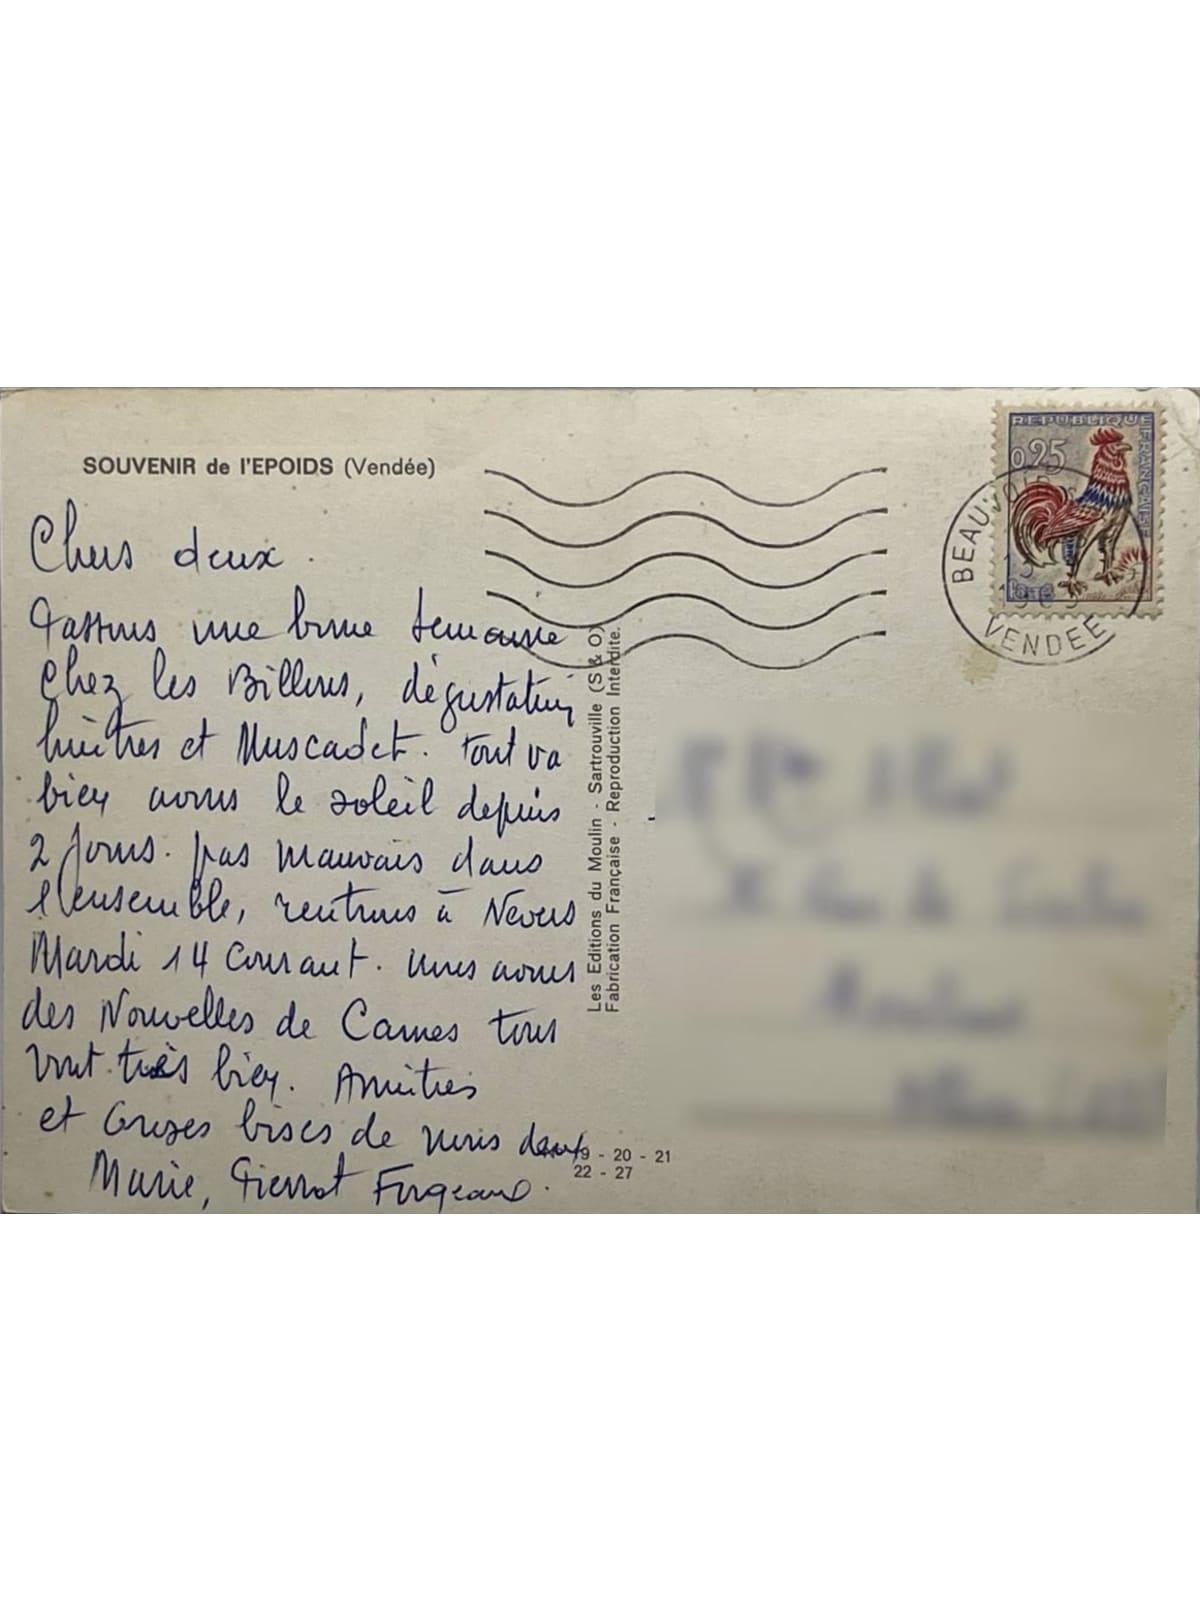 SOUVENIR de l'EPOIDS (Vendée)
Chers deux.
Passons une bonne semaine
chez les Billons, dégustation
huîtres et Muscadet. tout va
bien avons le soleil depuis
2 jours. pas mauvais dans
l'ensemble, rentrons à Nevers
Mardi 14 courant. nous avons
des Nouvelles de Cannes tous
vont très bien. Amitiés
et Grosses bises de nous deux
Marie, Pierrot Forgeard.
Les Editions du Moulin - Sartrouville (S & O)
Fabrication Française - Reproduction Interdite.
19 - 20 - 21
22 - 27
REPUBLIQUE FRANÇAISE
0,25
BEAUVOIR
VENDEE